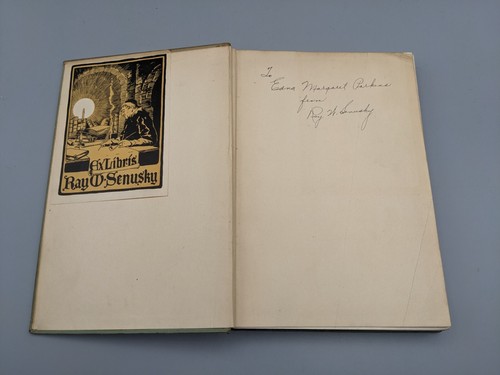 Ex Libris
Ray W. Senusky
To
Edna Margaret Perkins
from
Ray W. Senusky